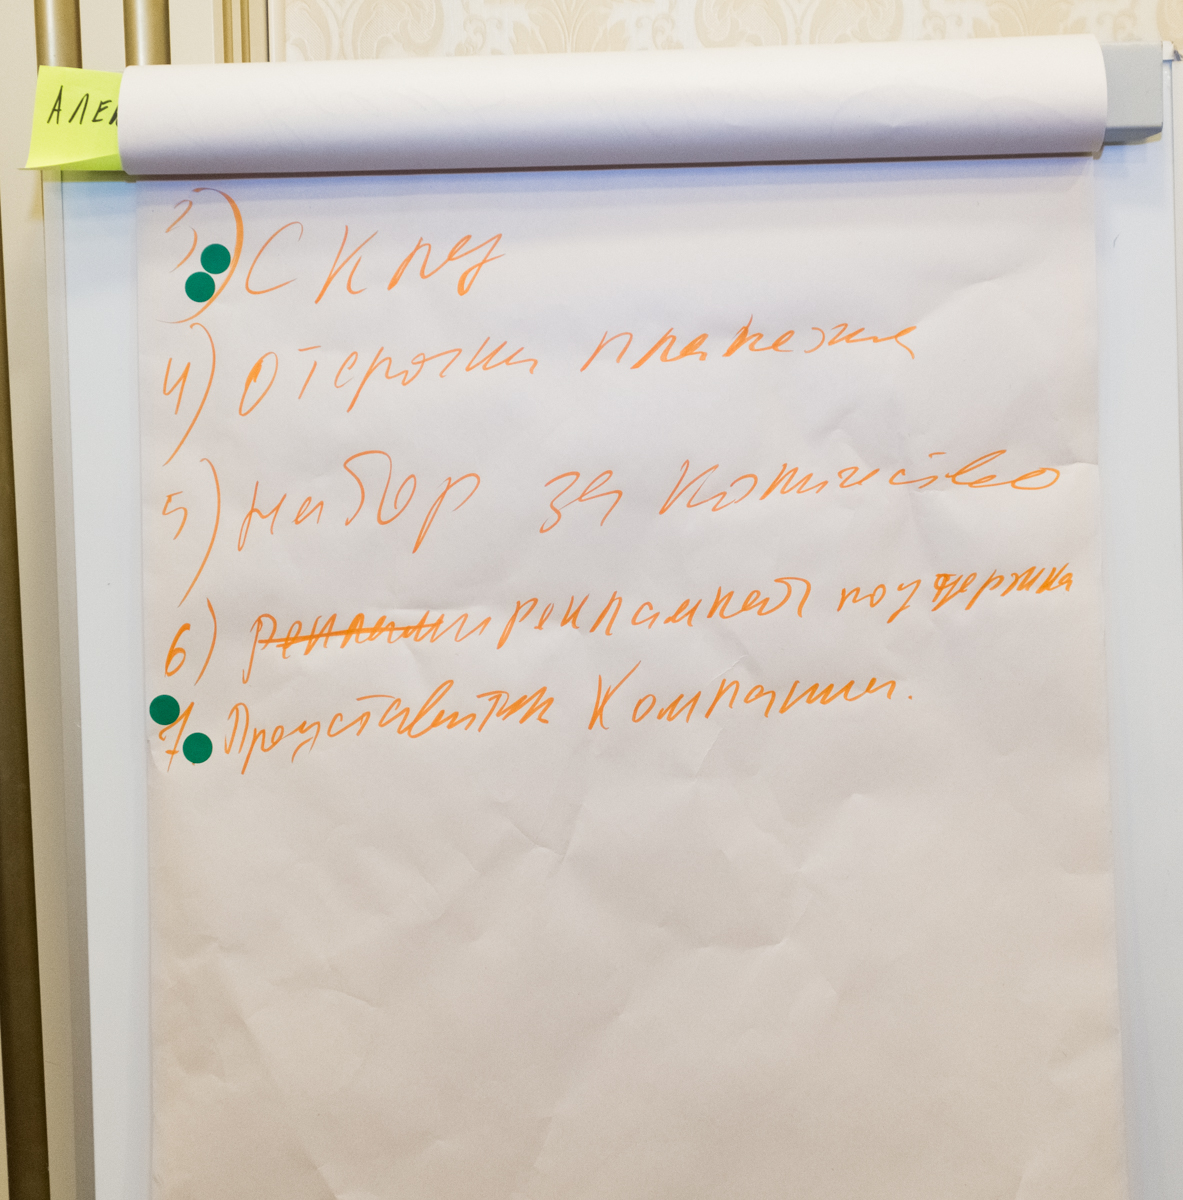 АЛЕК
3) Склад
4) Отсрочки платежа
5) набор за количество
6) реклами рекламная поддержка
7. Представитель Компании.